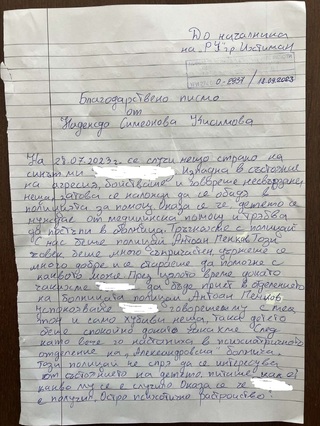 До началника
на РУ гр. Ихтиман
0-2939 / 18.09.2023
Благодарствено писмо
от
Надежда Симеонова Кисимова
На 28.07.2023г. се случи нещо страшно на
синът ми Изпадна в състояние
на агресия, беснееше и говореше несвързани
неща, затова се наложи да се обадя в
полицията за помощ. Оказа се че детето се
нуждае от медицинска помощ и трябва
да постъпи в болница. Тръгнахме с полицай
с нас беше полицай Антоан Пенков. Този
човек беше много съпричастен, държеше се
много добре и се стараеше да помогне с
каквото може. През цялото време докато
чакахме да бъде приет в отделението
на болницата полицай Антоан Пенков
успокояваше говорейки му с мек
тон и само хубави неща. Така детето
беше спокойно докато чакахме след
като вече го настаниха в психиатричното
отделение на Александровска болница.
Този полицай не спря да се интересува
от състоянието на детето, питаше как е и
какво му се е случило. Оказа се че
е получил "Остро психотично разтройство".